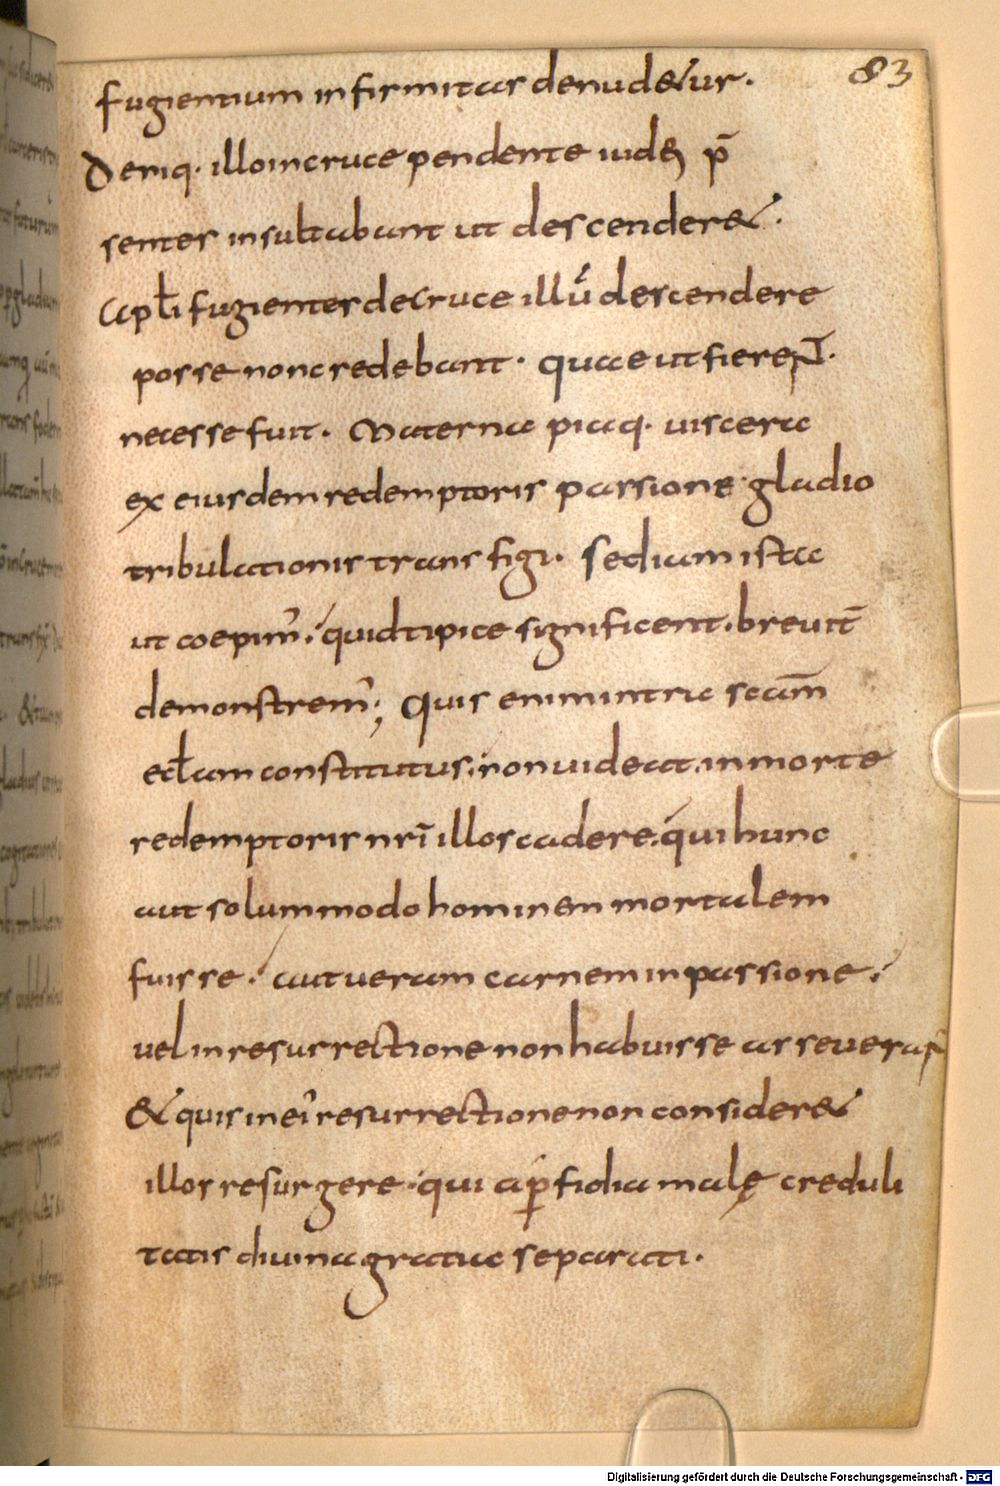 83
fugientium infirmitas denudetur.
Deniq. illo in cruce pendente iudei p̄
sentes insultabant ut descenderet.
apłi fugientes de cruce illū descendere
posse non credebant. quae ut fierent.
necesse fuit. Materna piaq. viscera
ex eiusdem redemptoris passione gladio
tribulationis transfigi. Sed iam ista
ut coepim'. quid tipice significent. breuit̄
demonstrem'; Quis enim intra scam̄
eccłam constitutus. non uideat. in morte
redemptoris nr̄i illos cadere. qui hunc
aut solummodo hominem mortalem
fuisse. aut ueram carnem in passione.
uel in resurrectione non habuisse asseuerant
& quis in ei' resurrectione non consideret
illos resurgere. qui a ꝑfidia malę creduli
tatis diuina gratia separati.
Digitalisierung gefördert durch die Deutsche Forschungsgemeinschaft - DFG